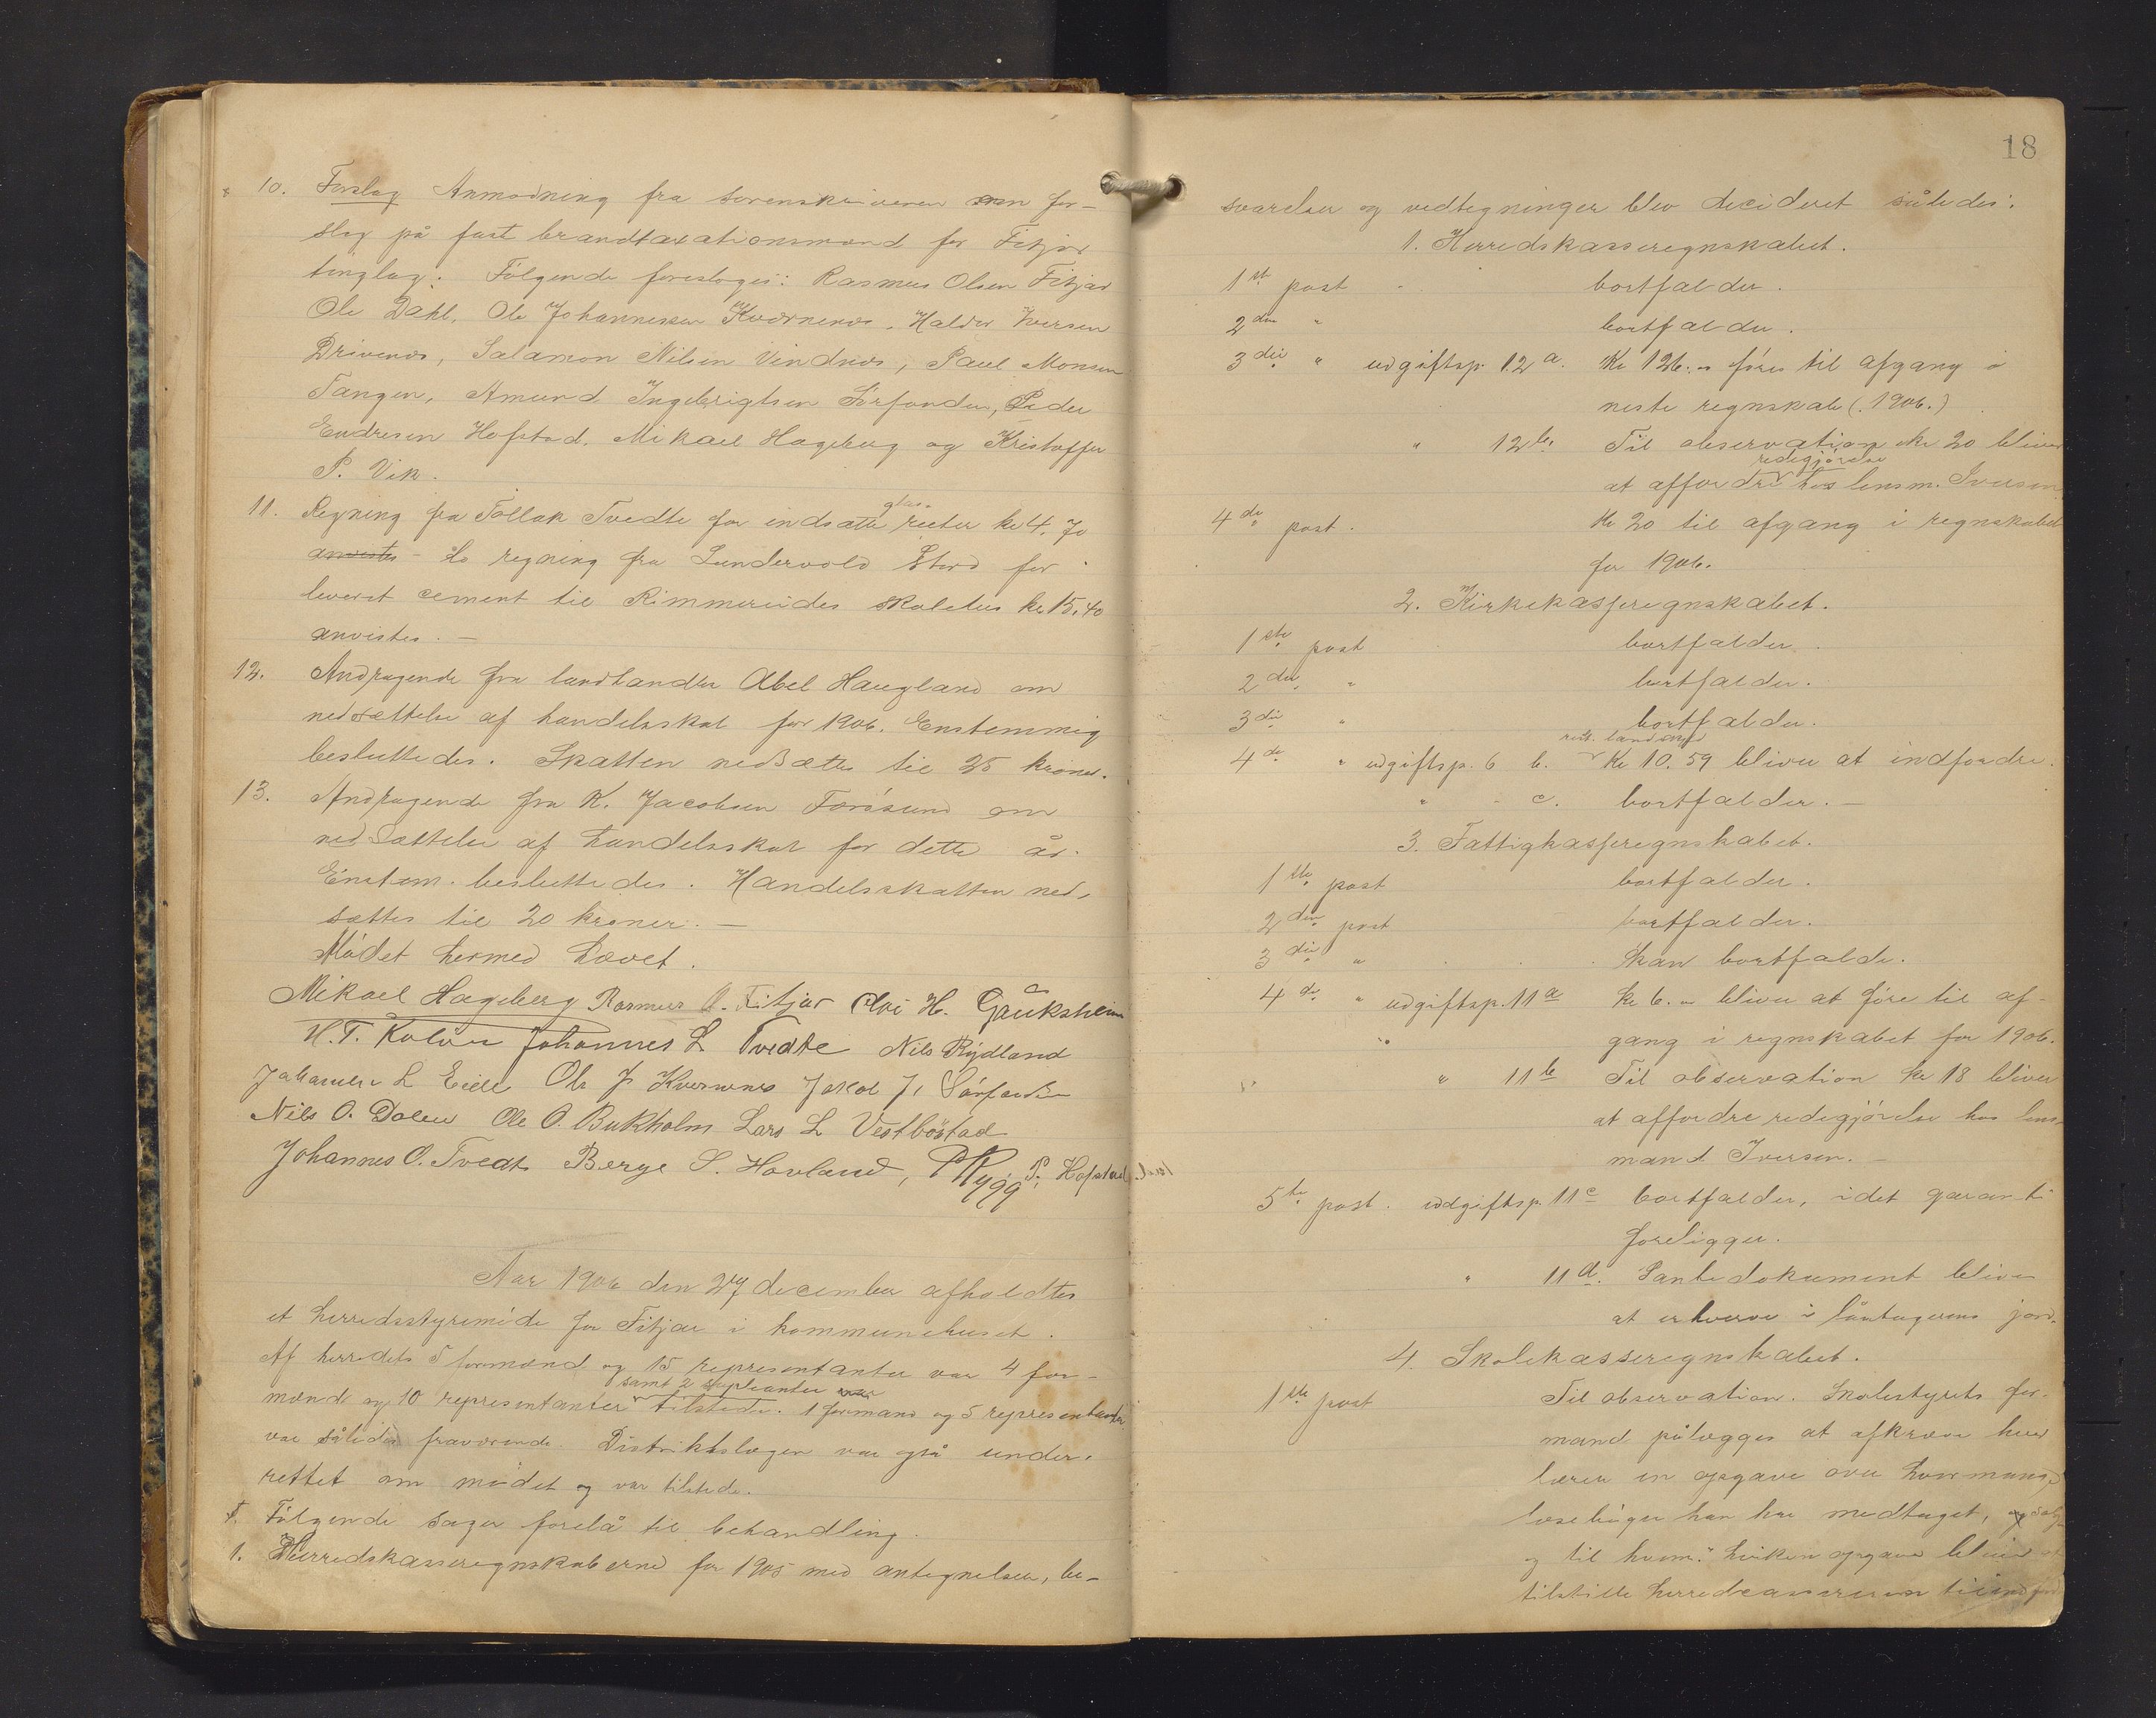 10. Forslag Anmodning fra sorenskriveren om for-
slag på fast brandtaxationsmænd for Fitjar
tinglag: Følgende foresloges: Rasmus Olsen Fitjar
Ole Dahl, Ole Johannessen Kværnenæs, Haldor Iversen
Drivenæs, Salamon Nilsen Vindnæs, Paul Monsen
Tangen, Amund Ingebrigtsen Sørfonden, Peder
Endresen Hofstad, Mikael Hageberg og Kristoffer
P. Vik.
11. Regning fra Tollak Tvedte for indsatte glas-ruter kr 4.70
anvistes - Do regning fra Sundervold Stord for
leveret cement til Rimmereides skolehus kr 15,40
anvistes. —
12. Andragende fra landhandler Abel Haugland om
nedsættelse af handelsskat for 1906. Enstemmig
besluttedes. Skatten nedsættes til 25 kroner.
13. Andragende fra K. Jacobsen Færøsund om
nedsættelse af handelsskat for dette år.
Enstem. besluttedes. Handelsskatten ned-
sættes til 20 kroner. —
Mødet hermed hævet.
Mikael Hageberg Rasmus O. Fitjar H. Gåuksheim
H. T. Johannes L Tvedte Nils Rydland
Johannes L Eide Ole J Kvernenes Jakob J. Sørfonden
Nils O. Dalen Ole O. Bukholm Lars L Vestbøstad
Johannes O. Tvedt Berge S. Hovland, P Rygg P. Hofstad
Aar 1906 den 27 december afholdtes
et herredsstyremøde for Fitjar i kommunehuset.
Af herredets 5 formænd og 15 representanter var 4 for-
mænd og 10 representanter samt 2 supleanter tilstede. 1 formand og 5 representanter
var således fraværende. Distriktslægen var også under-
rettet om mødet og var tilstede.
Følgende sager forelå til behandling.
1. Herredskasseregnskaberne for 1905 med antegnelser, be-
18
svarelser og vedtegninger blev decideret således:
1. Herredskasseregnskabet.
1ste post bortfalder.
2den " bortfalder.
3die " udgiftsp. 12 a. Kr 126.- føres til afgang i
neste regnskab (1906.)
" 12 b. Til observation kr 20 bliver
at affordre redegjørelse hos lensm. Iversen
4de post. Kr 20 til afgang i regnskabet
for 1906.
2. Kirkekasseregnskabet.
1ste post bortfalder.
2den " bortfalder.
3die " bortfalder.
4de " udgiftsp. 6 b. Kr 10.59 bliver at indfordre.
" - c. bortfalder. —
3. Fattigkasseregnskabet.
1ste post bortfalder.
2den post bortfalder.
3die " Kan bortfalde.
4de " udgiftsp. 11 a kr 6.- bliver at føre til af-
gang i regnskabet for 1906.
" 11 b Til observation kr 18 bliver
at affordre redegjørelse hos lens-
mand Iversen. —
5te post. udgiftsp. 11 c bortfalder, idet garanti
foreligger.
" 11 d. Pantedokument bliver
at erhverve i låntagerens jord.
4. Skolekasseregnskabet.
1ste post Til observation. Skolestyrets for-
mand pålægges at afkræve hver
lærer en opgave over hvormange
læsebøger han har medtaget,
og til hvem. hvilken opgave bliver
tilstille herredskassereren